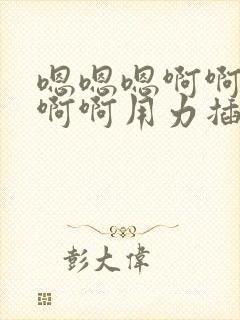 嗯嗯嗯啊啊
啊啊用力插
彭大偉